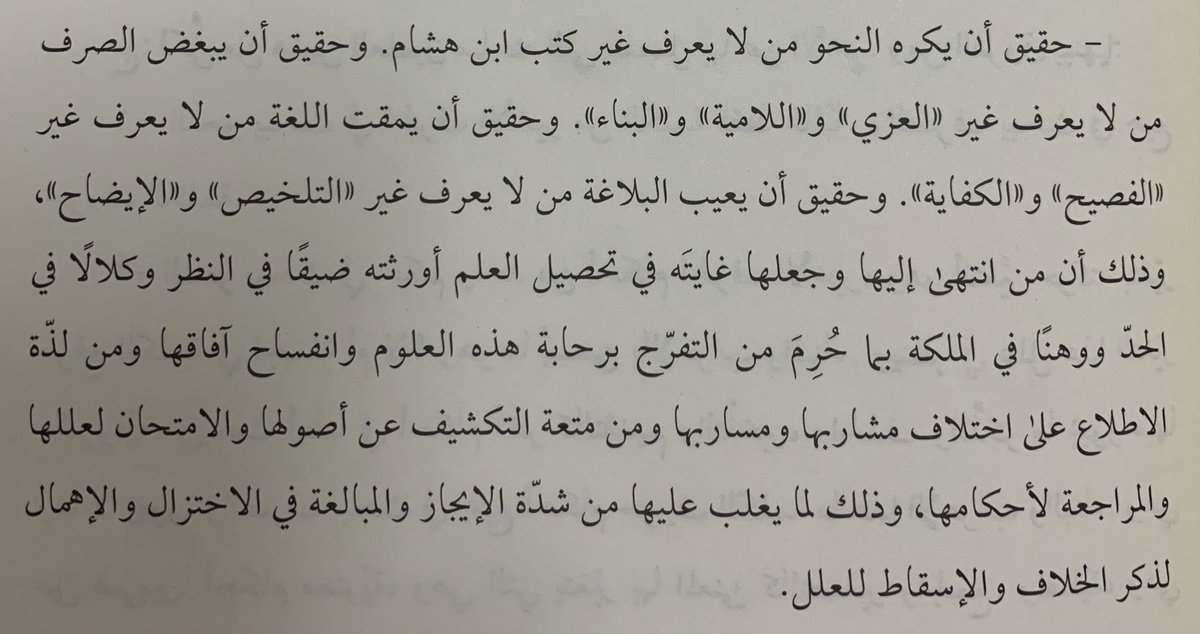 – حقيق أن يكره النحو من لا يعرف غير كتب ابن هشام. وحقيق أن يبغض الصرف
من لا يعرف غير «العزي» و«اللامية» و«البناء». وحقيق أن يمقت اللغة من لا يعرف غير
«الفصيح» و«الكفاية». وحقيق أن يعيب البلاغة من لا يعرف غير «التلخيص» و«الإيضاح»،
وذلك أن من انتهىٰ إليها وجعلها غايتَه في تحصيل العلم أورثته ضيقًا في النظر وكلالًا في
الحدّ ووهنًا في الملكة بما حُرِمَ من التفرّج برحابة هذه العلوم وانفساح آفاقها ومن لذّة
الاطلاع علىٰ اختلاف مشاربها ومساربها ومن متعة التكشيف عن أصولها والامتحان لعللها
والمراجعة لأحكامها، وذلك لما يغلب عليها من شدّة الإيجاز والمبالغة في الاختزال والإهمال
لذكر الخلاف والإسقاط للعلل.